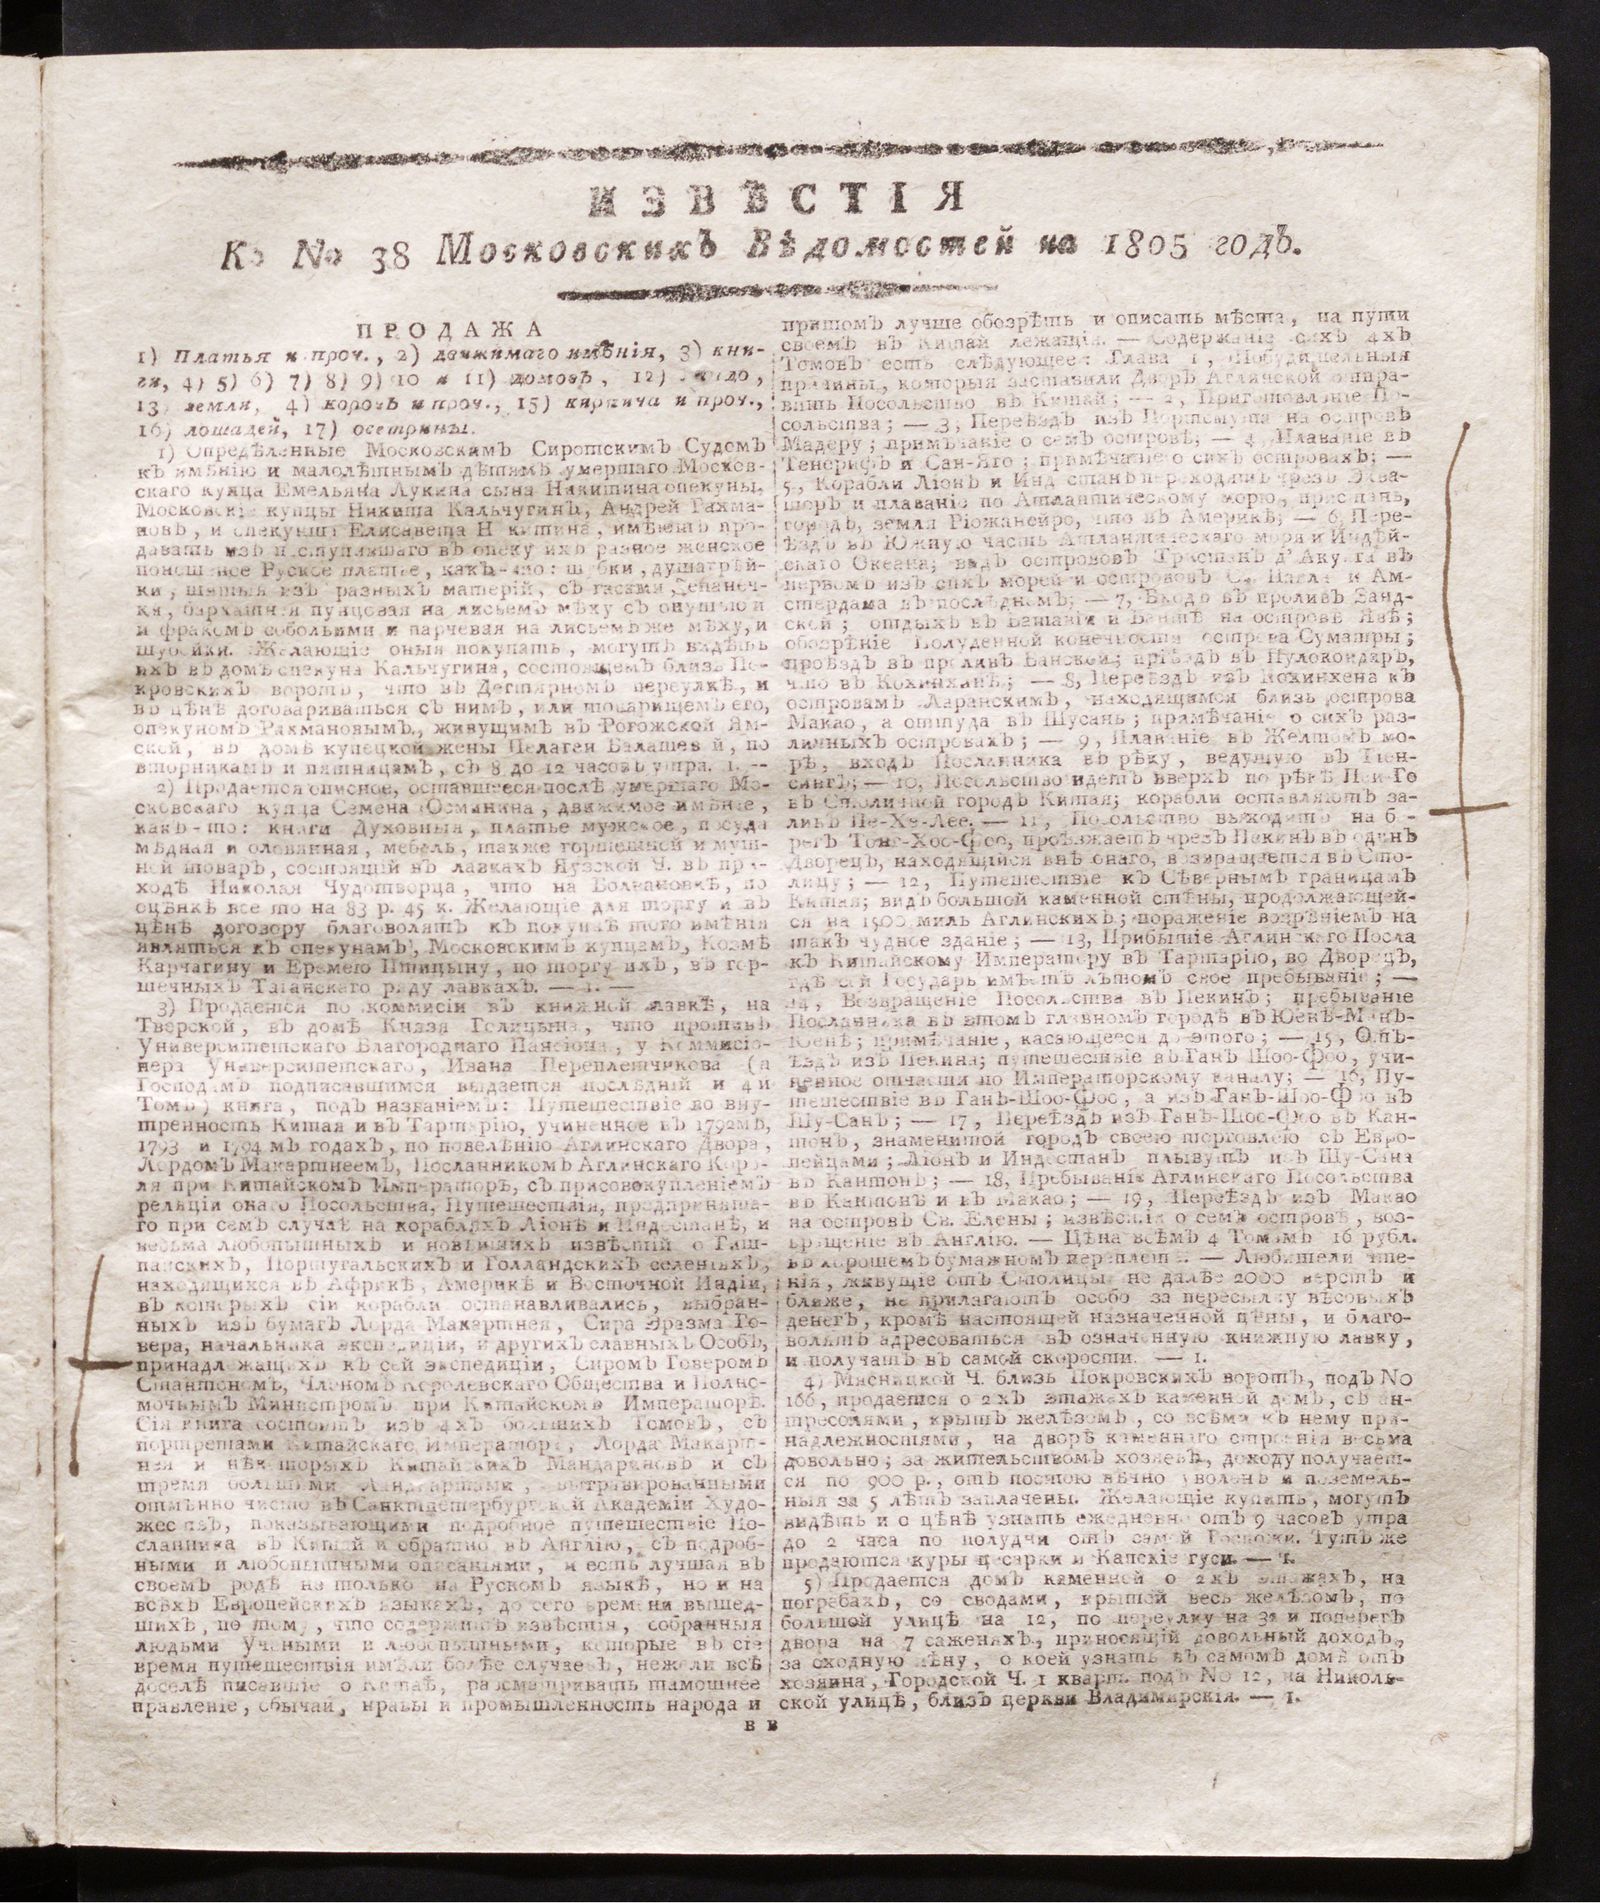 ИЗВѢСТІЯ
Къ No 38 Московскихъ Вѣдомостей на 1805 годъ.
ПРОДАЖА
1) Платья и проч., 2) движимаго имѣнія, 3) кни-
ги, 4) 5) 6) 7) 8) 9) 10 и 11) домовъ, 12)
13) земли, 4) коровъ и проч., 15) кирпича и проч.,
16) лошадей, 17) осетрины.
1) Опредѣленные Московскимъ Сиротскимъ Судомъ
къ имѣнію и малолѣтнымъ дѣтямъ умершаго Москов-
скаго купца Емельяна Лукина сына Никитина опекуны,
Московскіе купцы Никита Кальчугинъ, Андрей Рахма-
новъ, и опекунша Елисавета Никитина, имѣютъ про-
давать изъ поступившаго въ опеку ихъ разное женское
поношеное Руское платье, какъ-то: шубки, душагрѣй-
ки, шитыя изъ разныхъ матерій, съ гасами Епанеч-
ка, бархатная пунцовая на лисьемъ мѣху съ опушью и
и фракомъ собольими и парчевая на лисьемъ же мѣху, и
шубейки. Желающіе оныя покупать, могутъ видѣть
ихъ въ домѣ опекуна Кальчугина, состоящемъ близь По-
кровскихъ воротъ, что въ Дегтярномъ переулкѣ, и
въ цѣнѣ договариваться съ нимъ, или товарищемъ его,
опекуномъ Рахмановымъ, живущимъ въ Рогожской Ям-
ской, въ домѣ купецкой жены Пелагеи Балашевой, по
вторникамъ и пятницамъ, съ 8 до 12 часовъ утра. 1. —
2) Продается описное, оставшееся послѣ умершаго Мо-
сковскаго купца Семена Османина, движимое имѣніе,
какъ-то: книги Духовныя, платье мужское, посуда
мѣдная и оловянная, мебель, также горшешной и муш-
ной товаръ, состоящій въ лавкахъ Яузской Ч. въ при-
ходѣ Николая Чудотворца, что на Болвановкѣ, по
оцѣнкѣ все то на 83 р. 45 к. Желающіе для торгу и въ
цѣнѣ договору благоволятъ къ покупкѣ того имѣнія
являться къ опекунамъ, Московскимъ купцамъ, Козмѣ
Карчагину и Еремею Птицыну, по торгу ихъ, въ гор-
шечныхъ Таганскаго ряду лавкахъ. — 1. —
3) Продается по коммисіи въ книжной лавкѣ, на
Тверской, въ домѣ Князя Голицына, что противъ
Университетскаго Благороднаго Пансіона, у Коммисіо-
нера Университетскаго, Ивана Переплетчикова (а
Господамъ подписавшимся выдается послѣдній и 4й
Томъ) книга, подъ названіемъ: Путешествіе во вну-
тренность Китая и въ Тартарію, учиненное въ 1792мъ,
1793 и 1794мъ годахъ, по повелѣнію Аглинскаго Двора,
Лордомъ Макартнеемъ, Посланникомъ Аглинскаго Коро-
ля при Китайскомъ Императорѣ, съ присовокупленіемъ
реляціи онаго Посольства, Путешествія, предпринята-
го при семъ случаѣ на корабляхъ Ліонѣ и Индостанѣ, и
весьма любопытныхъ и новѣйшихъ извѣстій о Гиш-
панскихъ, Португальскихъ и Голландскихъ селеніяхъ,
находящихся въ Африкѣ, Америкѣ и Восточной Индіи,
въ которыхъ сіи корабли останавливались, выбран-
ныхъ изъ бумагъ Лорда Макартнея, Сира Эразма Го-
вера, начальника экспедиціи, и другихъ славныхъ Особъ,
принадлежащихъ къ сей экспедиціи, Сиромъ Говеромъ
Стантономъ, Членомъ Королевскаго Общества и Полно-
мочнымъ Министромъ при Китайскомъ Императорѣ.
Сія книга состоитъ изъ 4хъ большихъ Томовъ, съ
портретами Китайскаго Императора, Лорда Макарт-
нея и нѣкоторыхъ Китайскихъ Мандариновъ и съ
тремя большими Ландкартами, вытравированными
отмѣнно чисто въ Санктпетербургской Академіи Худо-
жествъ, показывающими подробное путешествіе По-
сланника въ Китай и обратно въ Англію, съ подроб-
ными и любопытными описаніями, и есть лучшая въ
своемъ родѣ не только на Рускомъ языкѣ, но и на
всѣхъ Европейскихъ языкахъ, до сего времени вышед-
шихъ, по тому, что содержитъ извѣстія, собранныя
людьми Учеными и любопытными, которые въ сіе
время путешествія имѣли болѣе случаевъ, нежели всѣ
доселѣ писавшіе о Китаѣ, разсматривать тамошнее
правленіе, обычаи, нравы и промышленность народа и
притомъ лучше обозрѣть и описать мѣста, на пути
своемъ въ Китай лежащія. — Содержаніе сихъ 4хъ
Томовъ есть слѣдующее: Глава 1, Побудительныя
причины, которыя заставили Дворъ Аглинской отпра-
вить Посольство въ Китай; — 2, Приготовленіе По-
сольства; — 3, Переѣздъ изъ Портсмута на островъ
Мадеру; примѣчаніе о семъ островѣ; — 4, Плаваніе въ
Тенерифъ и Сан-Яго; примѣчаніе о сихъ островахъ; —
5, Корабли Ліонъ и Индостанъ переходятъ чрезъ Эква-
торъ и плаваніе по Атлантическому морю, пристань,
городъ, земля Ріожанейро, что въ Америкѣ; — 6, Пере-
ѣздъ въ Южную часть Атлантическаго моря и Индѣй-
скаго Океана; видъ острововъ Тристанъ д'Акунга въ
первомъ изъ сихъ морей и острововъ Св. Павла и Ам-
стердама въ послѣднемъ; — 7, Входъ въ проливъ Занд-
ской; отдыхъ въ Батавіи и Бантѣ на островѣ Явѣ;
обозрѣніе Полуденной конечности острова Суматры;
проѣздъ въ проливѣ Банской; пріѣздъ въ Пулокондаръ,
что въ Кохинхинѣ; — 8, Переѣздъ изъ Кохинхена къ
островамъ Ларанскимъ, находящимся близь острова
Макао, а оттуда въ Шусанъ; примѣчаніе о сихъ раз-
личныхъ островахъ; — 9, Плаваніе въ Желтомъ мо-
рѣ, входъ Посланника въ рѣку, ведущую въ Тіен-
сингъ; — 10, Посольство идетъ вверхъ по рѣкѣ Пеи-Го
въ Столичной городъ Китая; корабли оставляютъ за-
ливъ Пе-Хе-Лее. — 11, Посольство выходитъ на бе-
регъ Тонг-Хоо-Фоо, проѣзжаетъ чрезъ Пекинъ въ одинъ
Дворецъ, находящійся внѣ онаго, возвращается въ Сто-
лицу; — 12, Путешествіе къ Сѣвернымъ границамъ
Китая; видъ большой каменной стѣны, продолжающей-
ся на 1500 миль Аглинскихъ; пораженіе воззрѣніемъ на
такъ чудное зданіе; — 13, Прибытіе Аглинскаго Посла
къ Китайскому Императору въ Тартарію, во Дворецъ,
гдѣ сей Государь имѣетъ лѣтомъ свое пребываніе; —
14, Возвращеніе Посольства въ Пекинъ; пребываніе
Посланника въ этомъ главномъ городѣ въ Юенѣ-Минъ-
Юенѣ; примѣчаніе, касающееся до этого; — 15, Отъ-
ѣздъ изъ Пекина; путешествіе въ Ганъ-Шоо-Фоо, учи-
ненное отчасти по Императорскому каналу; — 16, Пу-
тешествіе въ Ганъ-Шоо-Фоо, а изъ Ганъ-Шоо-Фоо въ
Шу-Санъ; — 17, Переѣздъ изъ Ганъ-Шоо-Фоо въ Кан-
тонъ, знаменитой городъ своею торговлею съ Евро-
пейцами; Ліонъ и Индостанъ плывутъ изъ Шу-Сана
въ Кантонъ; — 18, Пребываніе Аглинскаго Посольства
въ Кантонѣ и въ Макао; — 19, Переѣздъ изъ Макао
на островъ Св. Елены; извѣстія о семъ островѣ, воз-
вращеніе въ Англію. — Цѣна всѣмъ 4 Томамъ 16 рубл.
въ хорошемъ бумажномъ переплетѣ. — Любители чте-
нія, живущіе отъ Столицы не далѣе 2000 верстъ и
ближе, не прилагаютъ особо за пересылку вѣсовыхъ
денегъ, кромѣ настоящей назначенной цѣны, и благо-
волятъ адресоваться въ означенную книжную лавку,
и получатъ въ самой скорости. — 1.
4) Мясницкой Ч. близь Покровскихъ воротъ, подъ No
166, продается о 2хъ этажахъ каменной домъ, съ ан-
тресолями, крытъ желѣзомъ, со всѣми къ нему при-
надлежностями, на дворѣ каменнаго строенія весьма
довольно; за жительствомъ хозяевъ, доходу получает-
ся по 900 р., отъ постою вѣчно уволенъ и поземель-
ныя за 5 лѣтъ заплачены. Желающіе купить, могутъ
видѣть и о цѣнѣ узнать ежедневно отъ 9 часовъ утра
до 2 часа по полудни отъ самой Госпожи. Тутъ же
продаются куры цесарки и Капскіе гуси. — 1.
5) Продается домъ каменной о 2хъ этажахъ, на
погребахъ, со сводами, крытой весь желѣзомъ, по
большой улицѣ на 12, по переулку на 32 и поперегъ
двора на 7 саженяхъ, приносящій довольный доходъ,
за сходную цѣну, о коей узнать въ самомъ домѣ отъ
хозяина, Городской Ч. 1 кварт. подъ No 12, на Николь-
ской улицѣ, близъ церкви Владимирскія. — 1.
в в